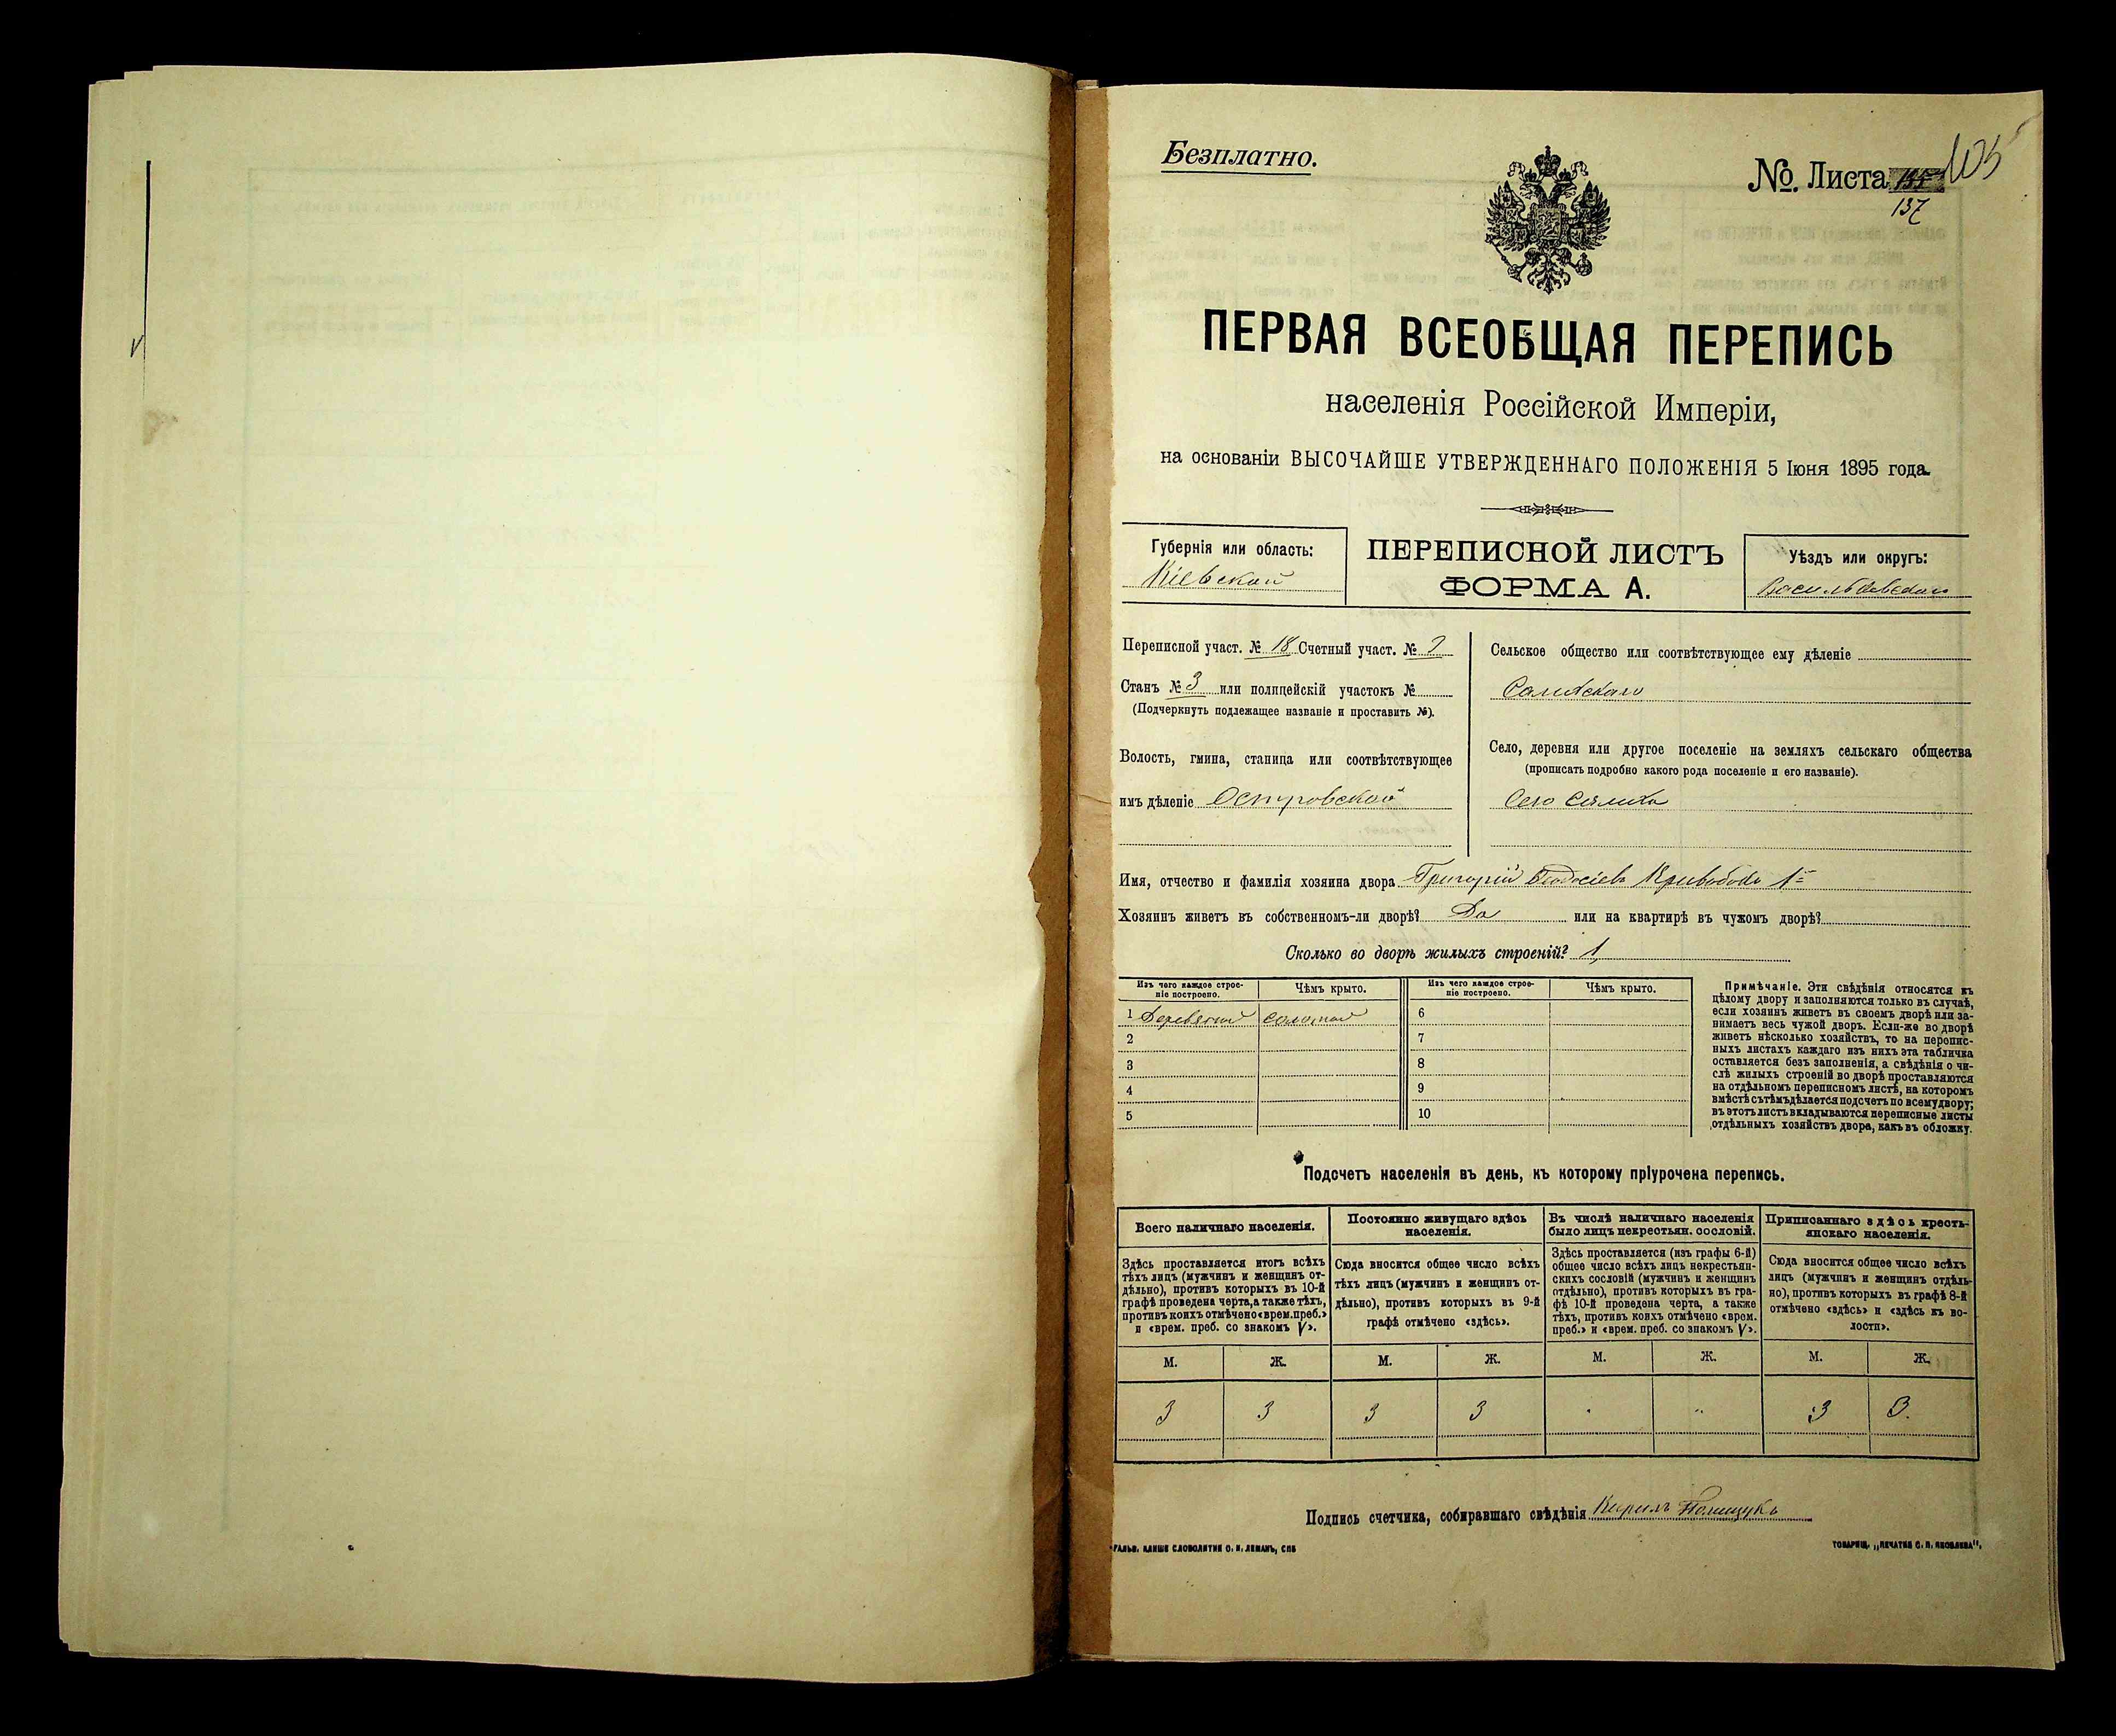 Безплатно.
№. Листа 137
105
ПЕРВАЯ ВСЕОБЩАЯ ПЕРЕПИСЬ
населенія Россійской Имперіи,
на основаніи ВЫСОЧАЙШЕ УТВЕРЖДЕННАГО ПОЛОЖЕНІЯ 5 Іюня 1895 года.
Губернія или область:
Кіевской
ПЕРЕПИСНОЙ ЛИСТЪ
ФОРМА А.
Уѣздъ или округъ:
Васильковскаго
Переписной участ. № 18 Счетный участ. № 2
Станъ № 3 или полицейскій участокъ №
(Подчеркнуть подлежащее названіе и проставить №).
Волость, гмина, станица или соотвѣтствующее
имъ дѣленіе Островской
Сельское общество или соотвѣтствующее ему дѣленіе
Село, деревня или другое поселеніе на земляхъ сельскаго общества
(прописать подробно какого рода поселеніе и его названіе).
Село
Имя, отчество и фамилія хозяина двора Григорій Феодосіевъ 1й
Хозяинъ живетъ въ собственномъ-ли дворѣ? Да или на квартирѣ въ чужомъ дворѣ?
Сколько во дворѣ жилыхъ строеній? 1,
Изъ чего каждое строе-
ніе построено.
Чѣмъ крыто.
Изъ чего каждое строе-
ніе построено.
Чѣмъ крыто.
1 6
2 7
3 8
4 9
5 10
Примѣчаніе. Эти свѣдѣнія относятся къ
цѣлому двору и заполняются только въ случаѣ,
если хозяинъ живетъ въ своемъ дворѣ или за-
нимаетъ весь чужой дворъ. Если-же во дворѣ
живетъ нѣсколько хозяйствъ, то на перепис-
ныхъ листахъ каждаго изъ нихъ эта табличка
оставляется безъ заполненія, а свѣдѣнія о чи-
слѣ жилыхъ строеній во дворѣ проставляются
на отдѣльномъ переписномъ листѣ, на которомъ
вмѣстѣ сътѣмъ дѣлается подсчетъ по всему двору;
въ этотъ листъ вкладываются переписные листы
отдѣльныхъ хозяйствъ двора, какъ въ обложку.
Подсчетъ населенія въ день, къ которому пріурочена перепись.
Всего наличнаго населенія.
Здѣсь проставляется итогъ всѣхъ
тѣхъ лицъ (мужчинъ и женщинъ от-
дѣльно), противъ которыхъ въ 10-й
графѣ проведена черта, а также тѣхъ,
противъ коихъ отмѣчено «врем. преб.»
и «врем. преб. со знакомъ V».
Постоянно живущаго здѣсь
населенія.
Сюда вносится общее число всѣхъ
тѣхъ лицъ (мужчинъ и женщинъ от-
дѣльно), противъ которыхъ въ 9-й
графѣ отмѣчено «здѣсь».
Въ числѣ наличнаго населенія
было лицъ некрестьян. сословій.
Здѣсь проставляется (изъ графы 6-й)
общее число всѣхъ лицъ некрестьян-
скихъ сословій (мужчинъ и женщинъ
отдѣльно), противъ которыхъ въ гра-
фѣ 10-й проведена черта, а также
тѣхъ, противъ коихъ отмѣчено «врем.
преб.» и «врем. преб. со знакомъ V».
Приписаннаго здѣсь кресть-
янскаго населенія.
Сюда вносится общее число всѣхъ
лицъ (мужчинъ и женщинъ отдѣль-
но), противъ которыхъ въ графѣ 8-й
отмѣчено «здѣсь» и «здѣсь къ во-
лости».
М. Ж. М. Ж. М. Ж. М. Ж.
3 3 3 3 3 3.
Подпись счетчика, собиравшаго свѣдѣнія Кирилъ Полищукъ
ГАЛЬВ. КЛИШЕ СЛОВОЛИТНИ О. И. ЛЕМАНЪ, СПБ
ТОВАРИЩ. „ПЕЧАТНЯ С. П. ЯКОВЛЕВА".